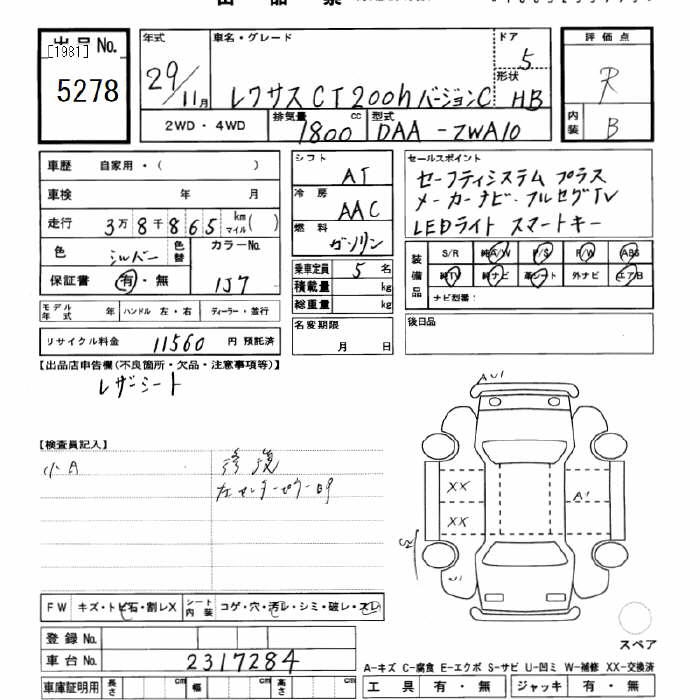 出品票
出品 No.
[1981]
5278
年式
29/11月
車名・グレード
レクサス CT200h バージョンC
ドア
5
形状
HB
評価点
R
内装
B
2WD・4WD
排気量
1800 cc
型式
DAA-ZWA10
車歴 自家用・( )
車検 年 月
走行 3万8千865 km マイル( )
色 シルバー 色替
カラーNo.
1J7
保証書 有・無
モデル年式 年 ハンドル 左・右 ディーラー・並行
リサイクル料金 11560 円 預託済
シフト
AT
冷房
AAC
燃料
ガソリン
乗車定員 5 名
積載量 kg
総重量 kg
名変期限
月 日
セールスポイント
セーフティシステム プラス
メーカーナビ・フルセグTV
LEDライト スマートキー
装備品
S/R 純A/W P/S P/W ABS
純TV 純ナビ 革シート 外ナビ エアB
ナビ型番:
後日品
【出品店申告欄(不良箇所・欠品・注意事項等)】
レザーシート
【検査員記入】
小A
修復
左センターピラー凹
AU1
XX
XX
A1
FW キズ・トビ石・割レX
シート内装 コゲ・穴・汚レ・シミ・破レ・スレ
登録 No.
車台 No. 2317284
車庫証明用 長さ cm 幅 cm 高さ cm
スペア
A-キズ C-腐食 E-エクボ S-サビ U-凹ミ W-補修 XX-交換済
工具 有・無 ジャッキ 有・無